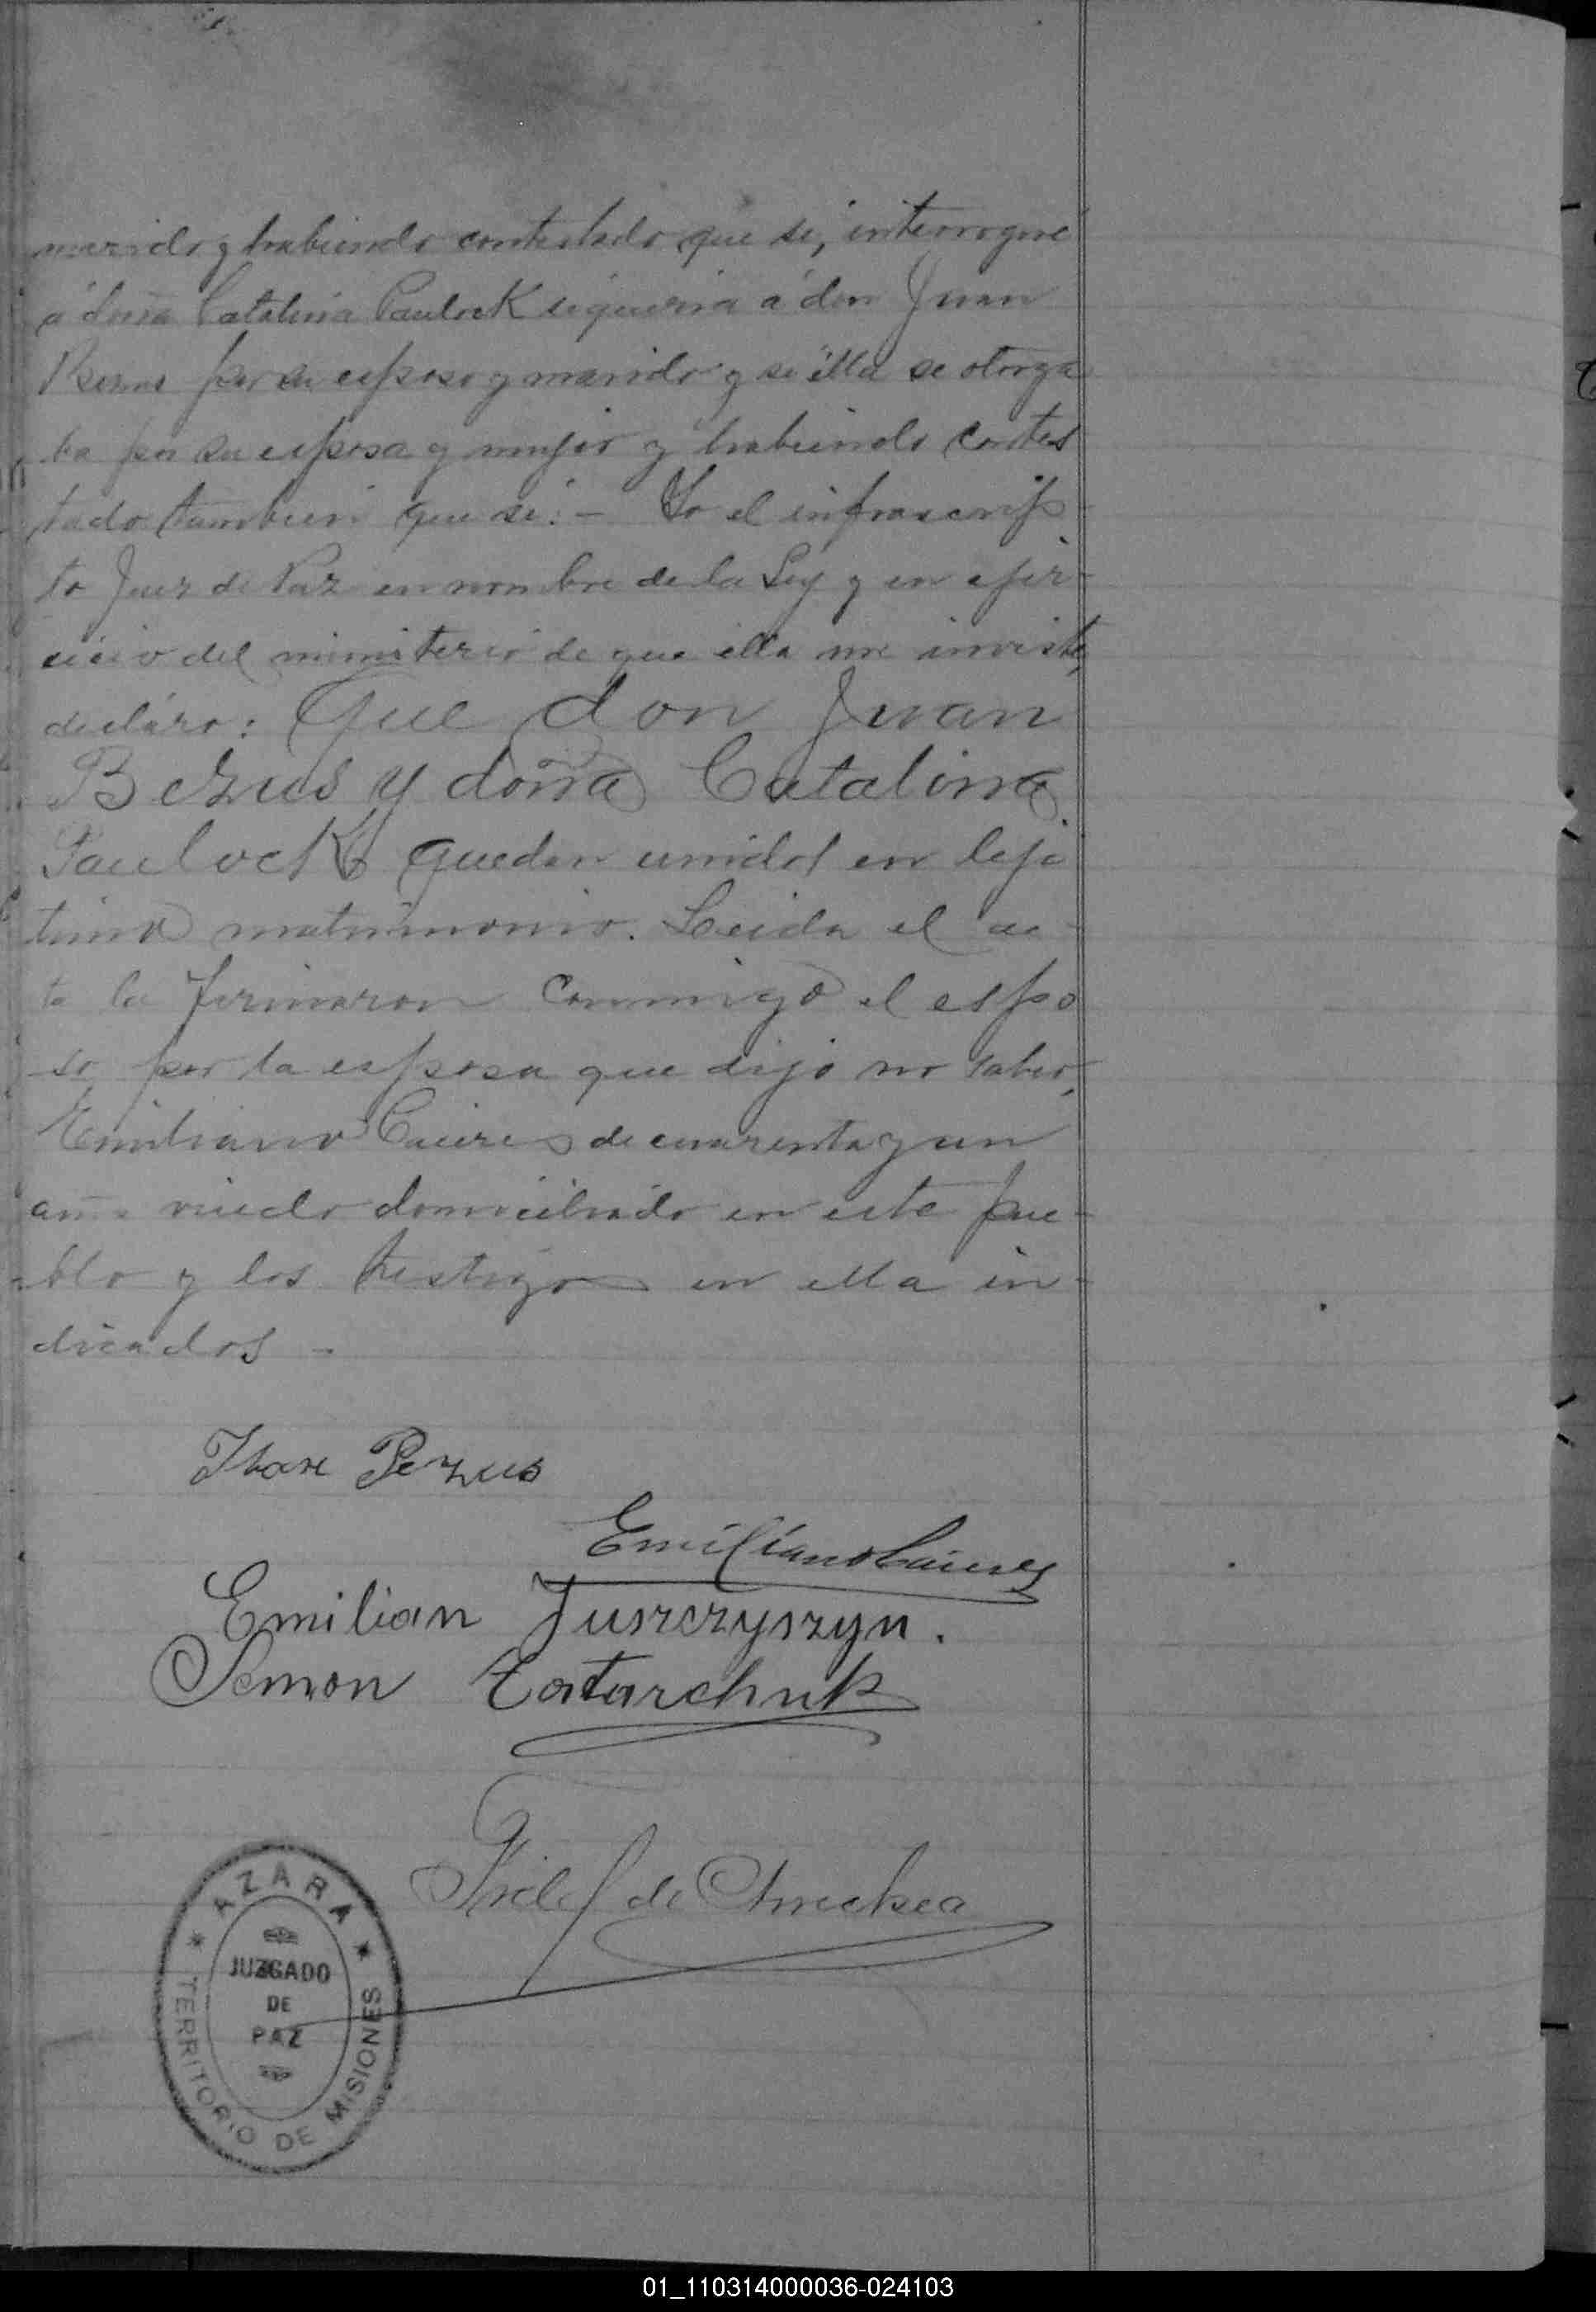 marido y habiendo contestado que si, interrogué
á doña Catalina Paulock si queria á don Juan
Bezus por su esposo y marido y si ella se otorga
ba por su esposa y mujer y habiendo contes
tado tambien que si:- Yo el infrascrip
to Juez de Paz en nombre de la Ley y en ejer-
cicio del ministerio de que ella me inviste,
decláro: Que don Juan
Bezus y doña Catalina
Paulock quedan unidos en leji
timo matrimonio. Leida el ac-
ta la firmaron conmigo el espo
so por la esposa que dijo no saber,
Emiliano Caires de cuarenta y un
años viudo domiciliado en este pue-
blo y los testigos en ella in-
dicados -
Pezus
Emiliano Caires
Emilian Juszczyszyn.
Semon Tatarchuk
de
AZARA
JUZGADO
DE
PAZ
TERRITORIO DE MISIONES
01_110314000036-024103